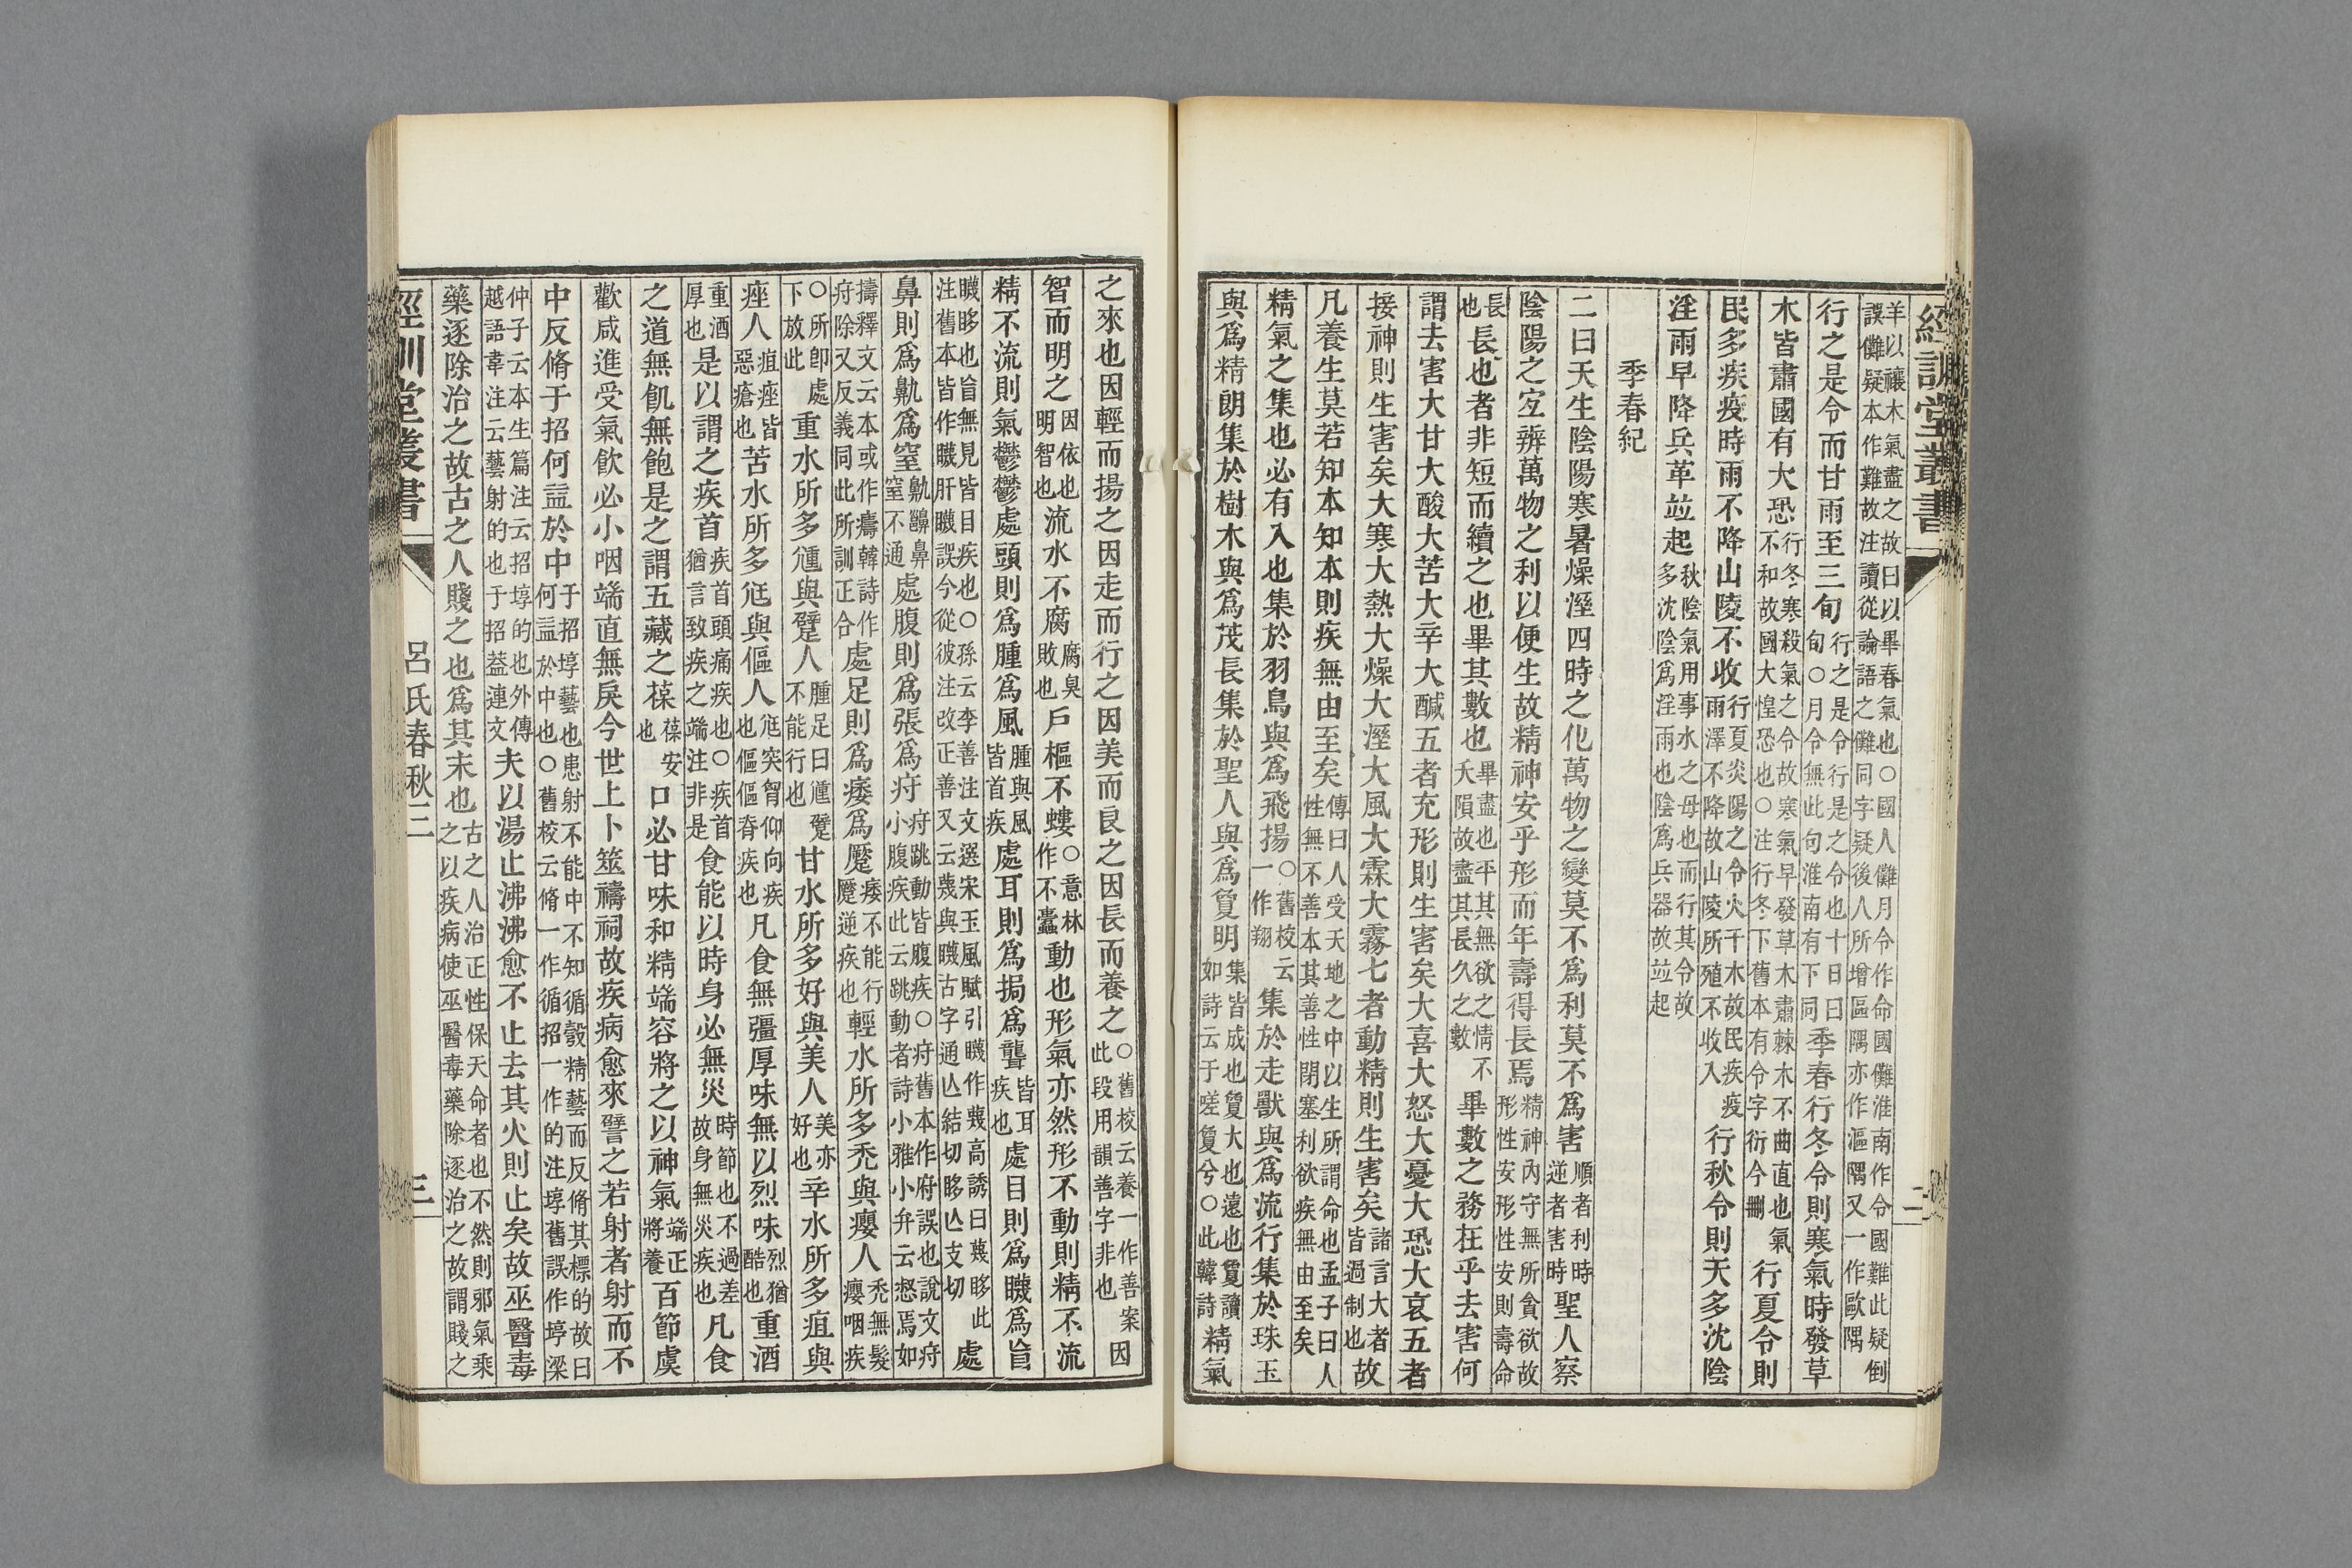 經訓堂叢書
二
羊以禳木氣盡之故曰以畢春氣也○國人儺月令作命國儺淮南作令國難此疑倒誤儺疑本作難故注讀從論語之儺同字疑後人所增區隅亦作漚隅又一作歐隅
行之是令而甘雨至三旬行之是令行是之令也十日曰旬○月令無此句淮南有下同季春行冬令則寒氣時發草
木皆肅國有大恐行冬寒殺氣之令故寒氣早發草木肅棘木不曲直也氣不和故國大惶恐也○注行冬下舊本有令字衍今刪行夏令則
民多疾疫時雨不降山陵不收行夏炎陽之令火干木故民疾疫雨澤不降故山陵所殖不收入行秋令則天多沈陰
淫雨早降兵革竝起秋陰氣用事水之母也而行其令故多沈陰爲淫雨也陰爲兵器故竝起
季春紀
二曰天生陰陽寒暑燥溼四時之化萬物之變莫不爲利莫不爲害順者利時逆者害時聖人察
陰陽之宐辨萬物之利以便生故精神安乎形而年壽得長焉精神內守無所貪欲故形性安形性安則壽命
長也長也者非短而續之也畢其數也畢盡也平其無欲之情不夭隕故盡其長久之數畢數之務在乎去害何
謂去害大甘大酸大苦大辛大鹹五者充形則生害矣大喜大怒大憂大恐大哀五者
接神則生害矣大寒大熱大燥大溼大風大霖大霧七者動精則生害矣諸言大者皆過制也故
凡養生莫若知本知本則疾無由至矣傳曰人受天地之中以生所謂命也孟子曰人性無不善本其善性閉塞利欲疾無由至矣
精氣之集也必有入也集於羽鳥與爲飛揚○舊校云一作翔集於走獸與爲流行集於珠玉
與爲精朗集於樹木與爲茂長集於聖人與爲敻明集皆成也敻大也遠也敻讀如詩云于嗟敻兮○此韓詩精氣
之來也因輕而揚之因走而行之因美而良之因長而養之○舊校云養一作善案此段用韻善字非也因
智而明之因依也明智也流水不腐腐臭敗也戶樞不螻○意林作不蠹動也形氣亦然形不動則精不流
精不流則氣鬱鬱處頭則爲腫爲風腫與風皆首疾處耳則爲挶爲聾皆耳疾也處目則爲䁾爲盲
䁾眵也盲無見皆目疾也○孫云李善注文選宋玉風賦引䁾作蔑高誘曰蔑眵此注舊本皆作䁾肝䁾誤今從彼注改正善又云蔑與䁾古字通亾結切眵亾支切處
鼻則爲鼽爲窒鼽齆鼻窒不通處腹則爲張爲疛疛跳動皆腹疾○疛舊本作府誤也說文疛小腹疾此云跳動者詩小雅小弁云惄焉如
擣釋文云本或作㿒韓詩作疛除又反義同此所訓正合處足則爲痿爲蹷痿不能行蹷逆疾也輕水所多禿與癭人禿無髮癭咽疾
○所卽處下放此重水所多尰與躄人腫足曰尰躄不能行也甘水所多好與美人美亦好也辛水所多疽與
痤人疽痤皆惡瘡也苦水所多尪與傴人尪突胷仰向疾也傴傴脊疾也凡食無彊厚味無以烈味烈猶酷也重酒
重酒厚也是以謂之疾首疾首頭痛疾也○疾首猶言致疾之端注非是食能以時身必無災時節也不過差故身無災疾也凡食
之道無飢無飽是之謂五藏之葆葆安也口必甘味和精端容將之以神氣端正將養百節虞
歡咸進受氣飲必小咽端直無戾今世上卜筮禱祠故疾病愈來譬之若射者射而不
中反脩于招何益於中于招埻藝也患射不能中不知循彀精藝而反脩其標的故曰何益於中也○舊校云脩一作循招一作的注埻舊誤作埻梁
仲子云本生篇注云招埻的也外傳越語韋注云藝射的也于招葢連文夫以湯止沸沸愈不止去其火則止矣故巫醫毒
藥逐除治之故古之人賤之也爲其末也古之人治正性保天命者也不然則邪氣乘之以疾病使巫醫毒藥除逐治之故謂賤之
經訓堂叢書
呂氏春秋三
三